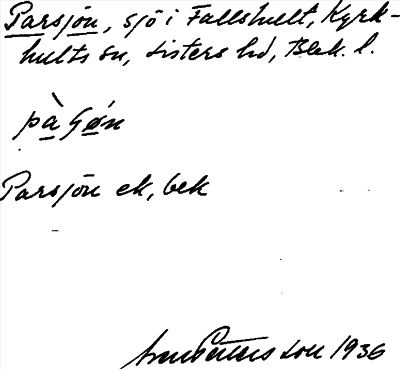 Parsjön, sjö i Fallshult, Kyrk-
hults sn, Listers hd, Blek. l.
pà Gǿn
Parsjön ek, bek
Pettersson 1936